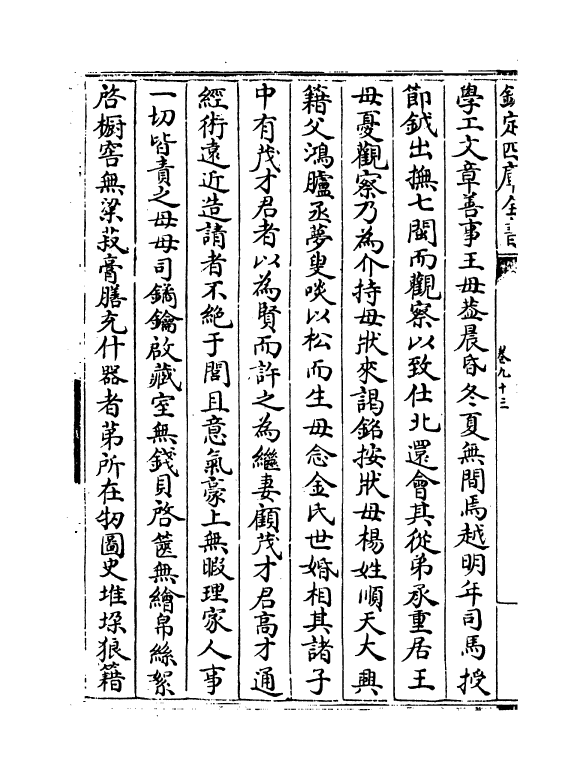 欽定四庫全書
卷九十三
學工文章善事王母葢晨昏冬夏無間焉越明年司馬授
節鉞出撫七閩而觀察以致仕北還會其從弟承重居王
母憂觀察乃為介持母狀來謁銘按狀母楊姓順天大興
籍父鴻臚丞夢叟啖以松而生母念金氏世婚相其諸子
中有茂才君者以為賢而許之為繼妻顧茂才君高才通
經術遠近造請者不絕于閭且意氣豪上無暇理家人事
一切皆責之母母司鏑鑰啟藏室無錢貝啓篋無繒帛絲絮
啓櫥窖無粱菽膏膳充什器者苐所在物圖史堆垜狼籍